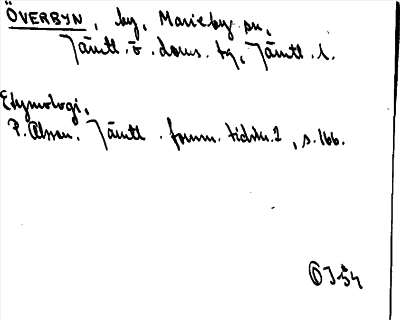 ÖVERBYN, by, Marieby sn,
Jämtl. ö. doms. tg, Jämtl. l.
Etymologi,
P. Olsson. Jämtl. fornm. tidskr. 2, s. 166.